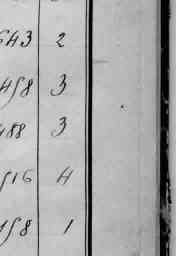 643 2
458 3
488 3
516 4
458 1